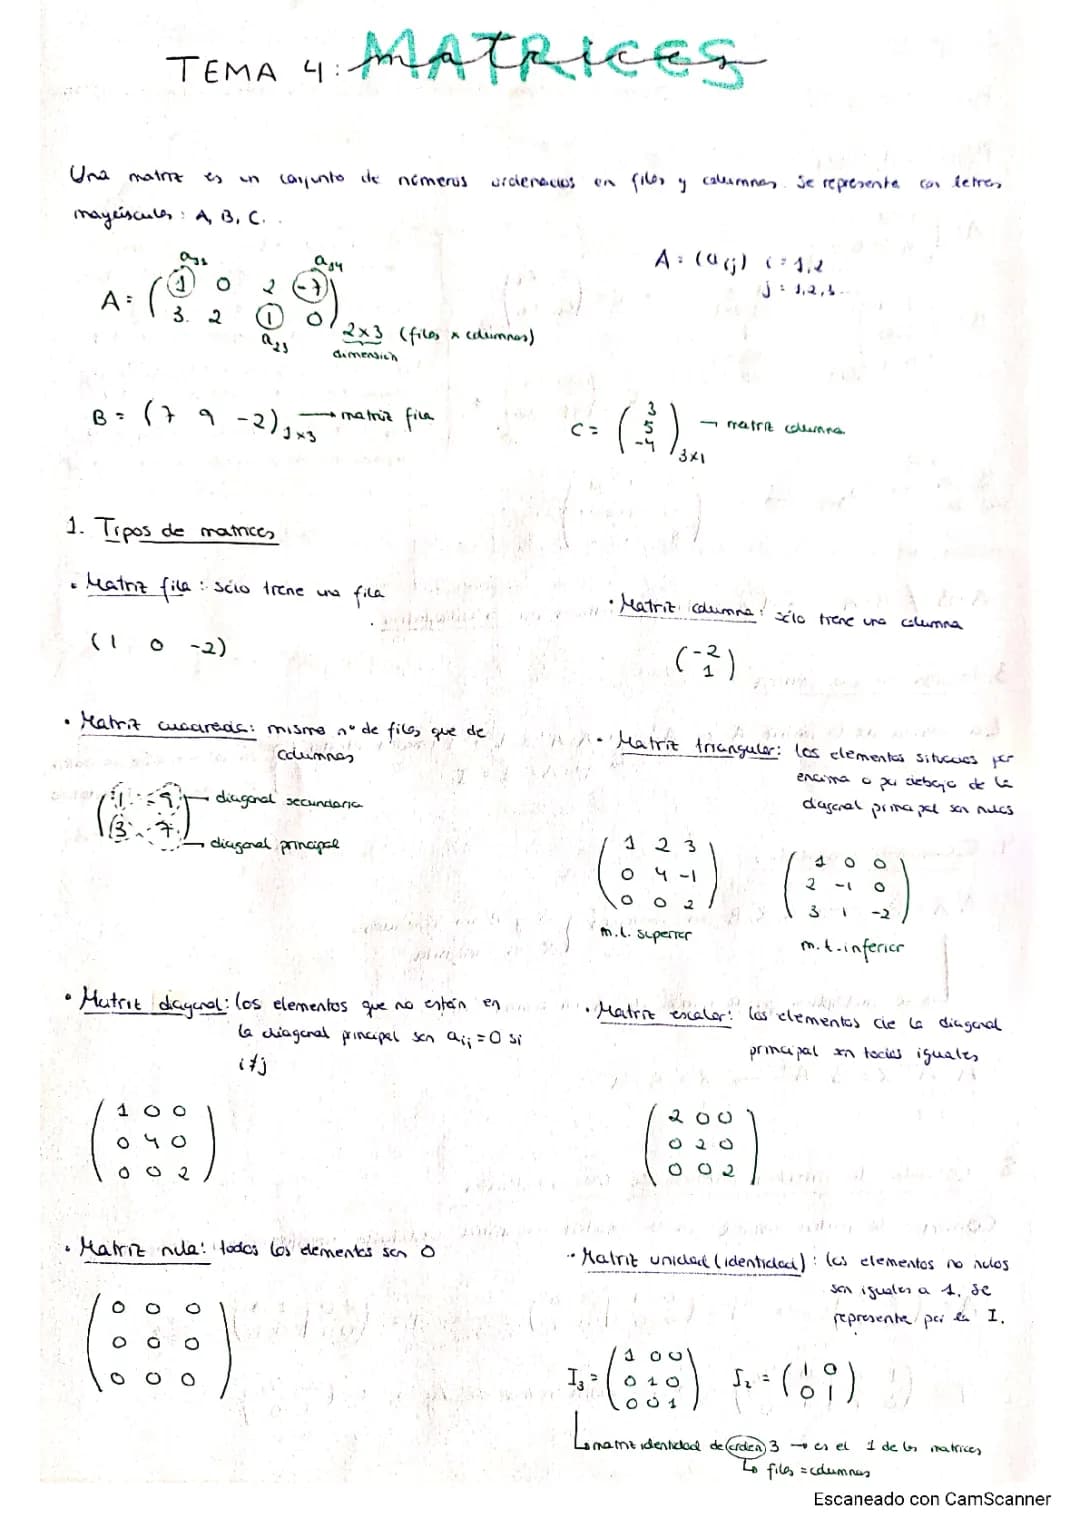 TEMA 4: MATRICES
matrices
Una matriz es un conjunto de números ordenados en filas y columnas. Se representa con letras
mayúsculas: A, B, C...
a₁₁ a₁₄
A = ( 1 0 2 -7 )
( 3 2 1 0 ) 2x3 (filas x columnas)
a₂₃ dimensión
A = (aij) i = 1,2
j = 1,2,3...
B = (7 9 -2) 1x3 → matriz fila
C = ( 3
5
-4 ) 3x1 → matriz columna
1. Tipos de matrices
• Matriz fila: sólo tiene una fila
(1 0 -2)
• Matriz columna: sólo tiene una columna
( -2
1 )
• Matriz cuadrada: mismo nº de filas que de
columnas
( 1 -9 ) → diagonal secundaria
( 3 7 ) → diagonal principal
• Matriz triangular: los elementos situados por
encima o por debajo de la
diagonal principal son nulos
( 1 2 3 )
( 0 4 -1 )
( 0 0 2 )
m.t. superior
( 1 0 0 )
( 2 -1 0 )
( 3 1 -2 )
m.t. inferior
• Matriz diagonal: los elementos que no están en
la diagonal principal son aij = 0 si
i≠j
( 1 0 0 )
( 0 4 0 )
( 0 0 2 )
• Matriz escalar: los elementos de la diagonal
principal son todos iguales
( 2 0 0 )
( 0 2 0 )
( 0 0 2 )
• Matriz nula: todos los elementos son 0
( 0 0 0 )
( 0 0 0 )
( 0 0 0 )
• Matriz unidad (identidad): los elementos no nulos
son iguales a 1. Se
representa por la I.
I₃ = ( 1 0 0 )
( 0 1 0 )
( 0 0 1 )
I₂ = ( 1 0 )
( 0 1 )
↳ matriz identidad de orden 3 → es el 1 de las matrices
↳ filas = columnas
Escaneado con CamScanner